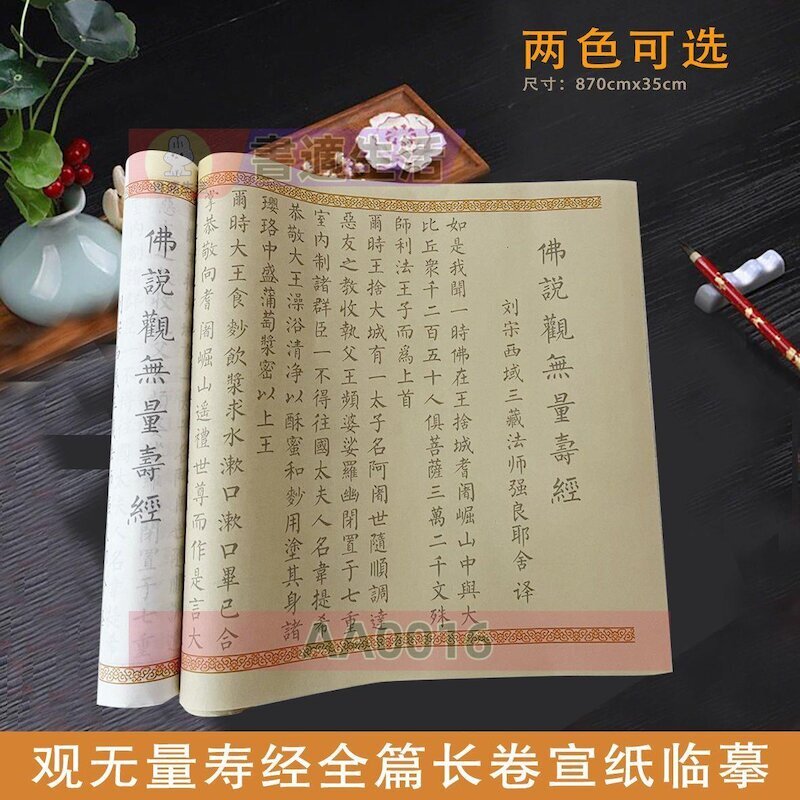 两色可选
尺寸：870cmx35cm
書適生活
佛說觀無量壽經
刘宋西域三藏法师强良耶舍 译
如是我聞一時佛在王捨城耆闍崛山中與大
比丘衆千二百五十人俱菩薩三萬二千文殊
師利法王子而爲上首
爾時王捨大城有一太子名阿闍世隨順調達
惡友之教收執父王頻婆娑羅幽閉置于七重
室内制諸群臣一不得往國太夫人名韋提希
恭敬大王澡浴清净以酥蜜和麨用塗其身諸
瓔珞中盛蒲萄漿密以上王
爾時大王食麨飲漿求水漱口漱口畢已合
掌恭敬向耆闍崛山遥禮世尊而作是言大
佛說觀無量壽經
閉置于七重
AA0016
观无量寿经全篇长卷宣纸临摹